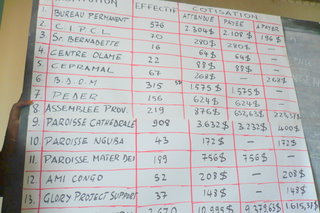 INSTITUTION EFFECTIF COTISATION
ATTENDUE PAYÉE A PAYER
1. BUREAU PERMANENT 576 2.304$ 2.108$ 196$
2. C.I.P.C.L. 70 280$ 280$ -
3. Sr. BERNADETTE 16 64$ 64$ -
4. CENTRE OLAME 22 88$ 88$ -
5. CEPRAMAL 67 268$ - 268$
6. B.D.O.M 315 1.575$ 1.575$ -
7 PEDER 156 624$ 624$ -
8 ASSEMBLÉE PROV. 219 876$
9. PAROISSE CATHEDRALE 908 3.632$ 3.232$ 400$
10. PAROISSE NGUBA 43 172$ - 172$
11. PAROISSE MATER DEI 189 756$ 756$ -
12. AMI CONGO 52 208$ - 208$
13. GLORY PROTECT SUPPORT 37 148$ - 148$